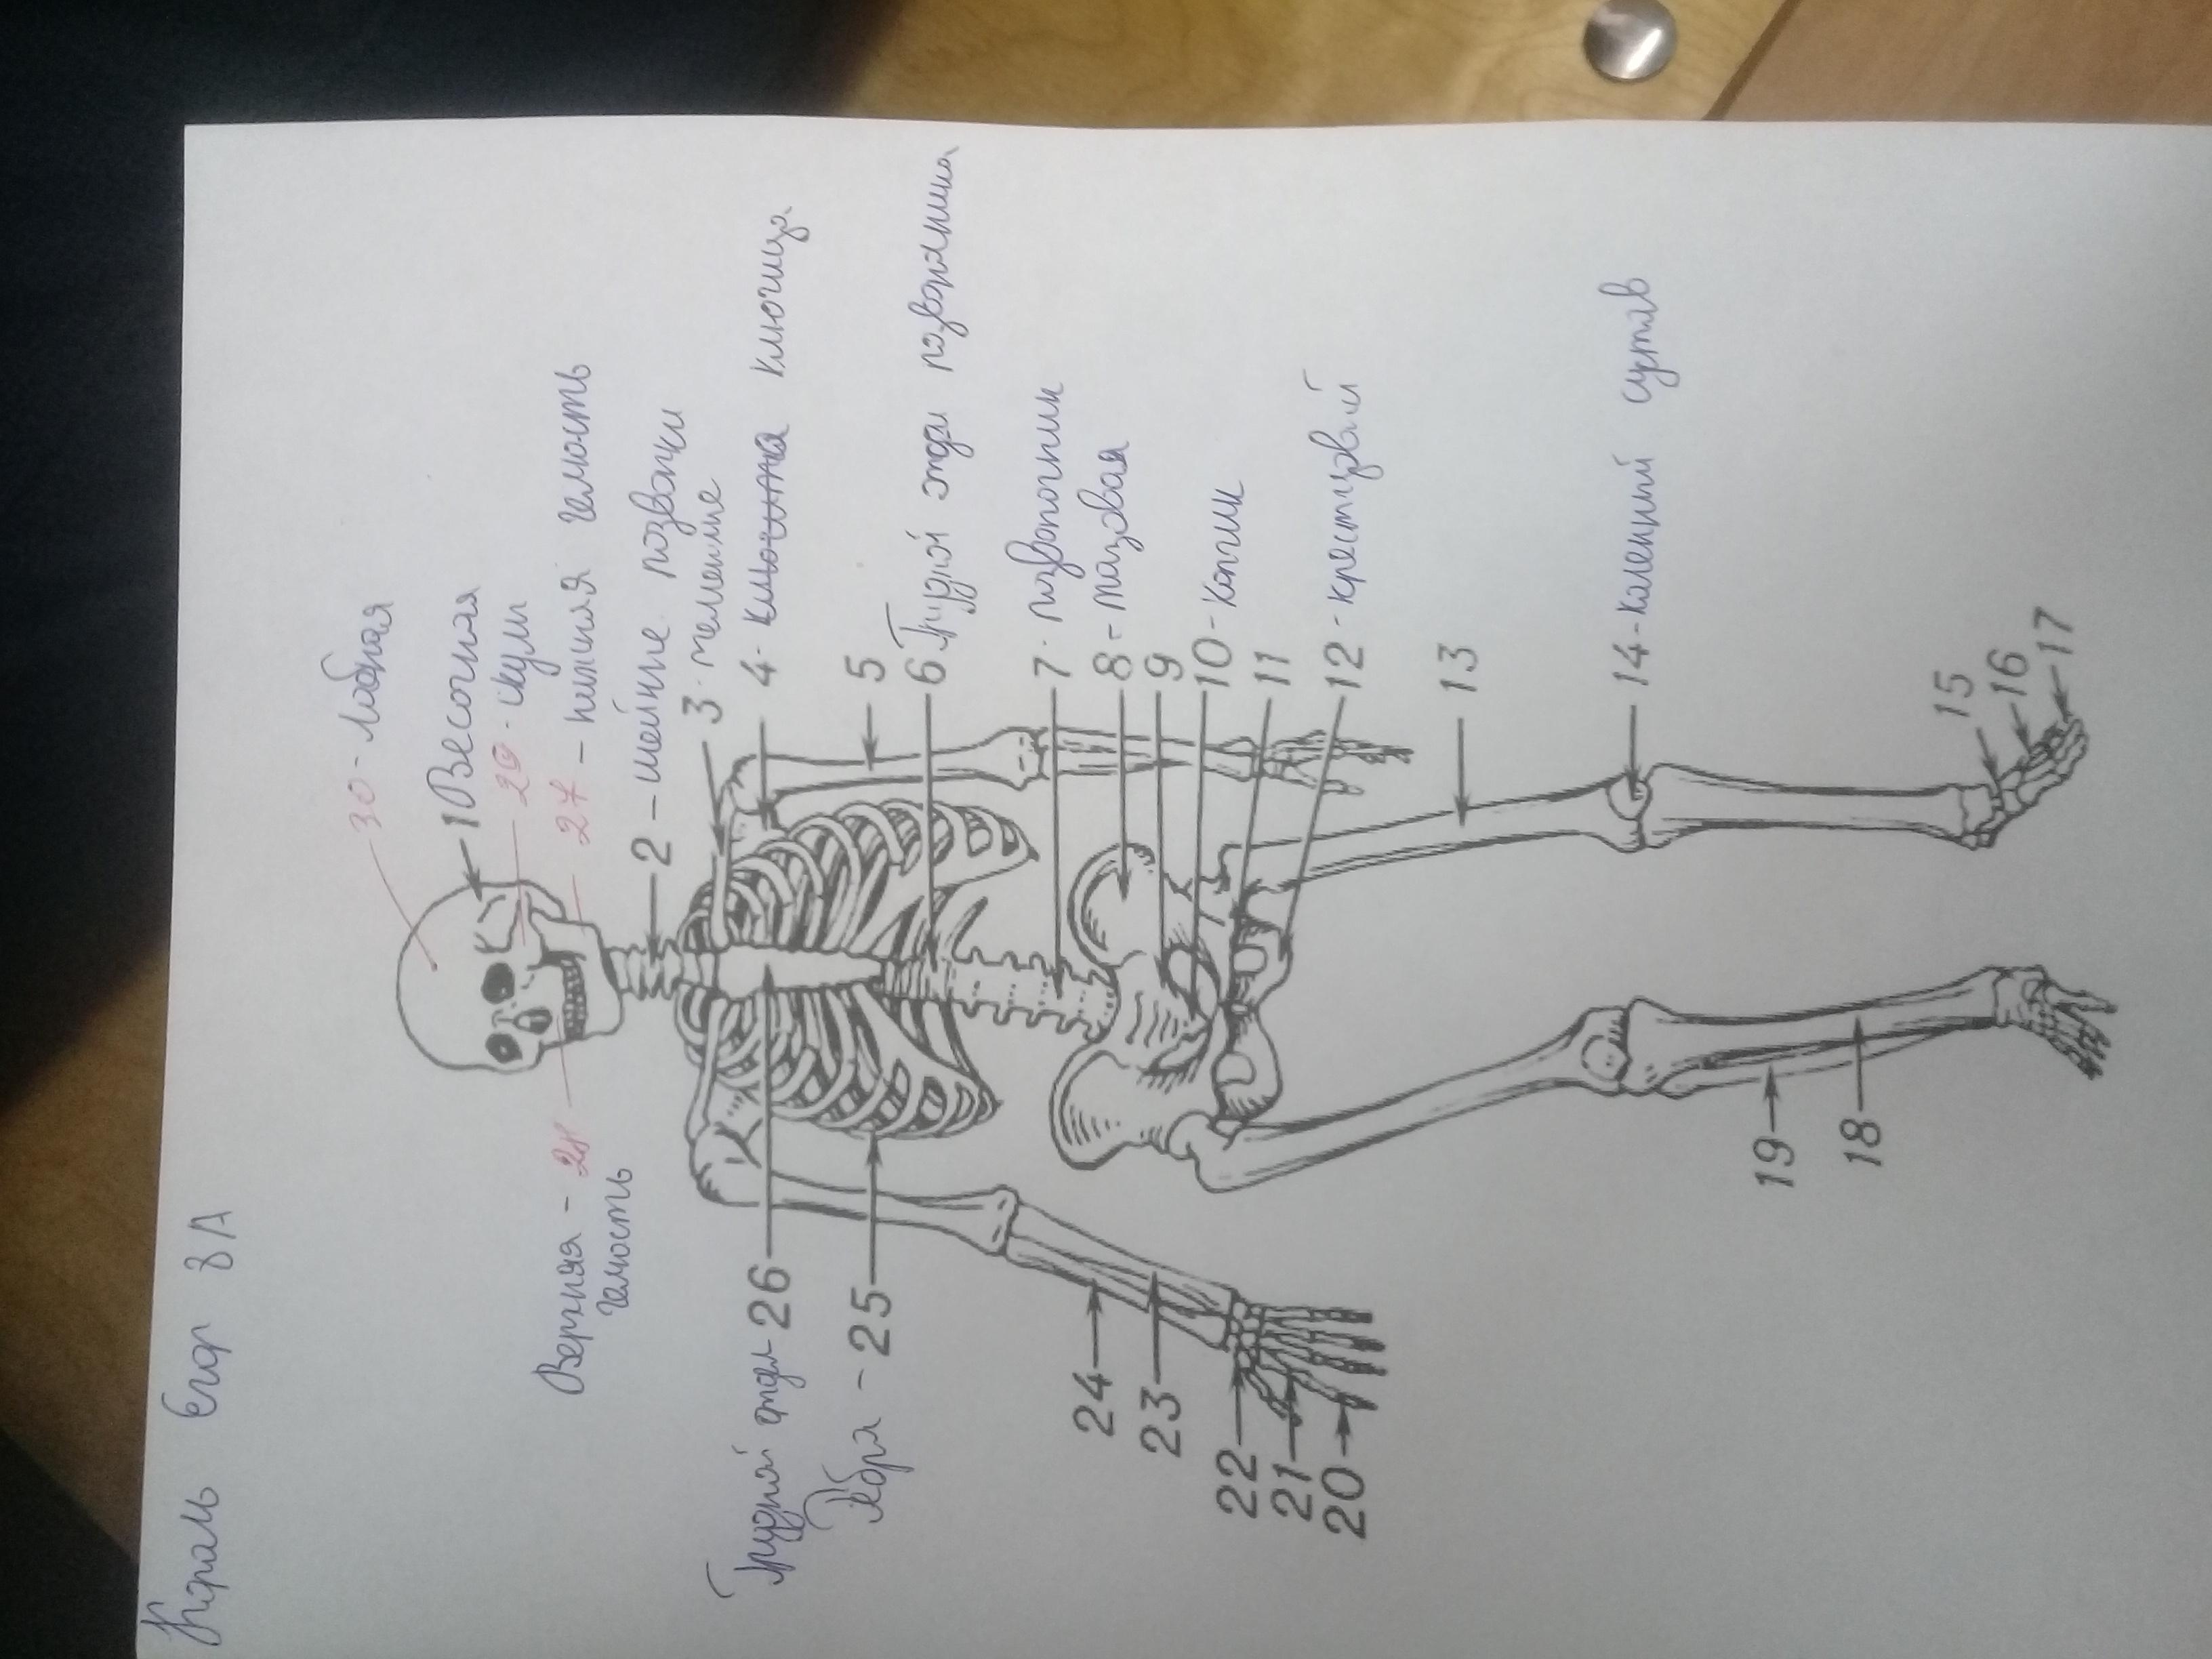 Кораль Егор 8А
30 - Лобная
1 Височная
29 - скулы
27 - нижняя челюсть
Верхняя - 28
челюсть
2 - шейные позвонки
3 -
4 - ключица
5
Грудной отдел 26
6 Грудной отдел
Рёбра - 25
7 - позвоночник
8 - тазовая
9
10 - Копчик
11
12 - крестцовый
24
23
22
21
20
13
14 - коленный сустав
19
18
15
16
17